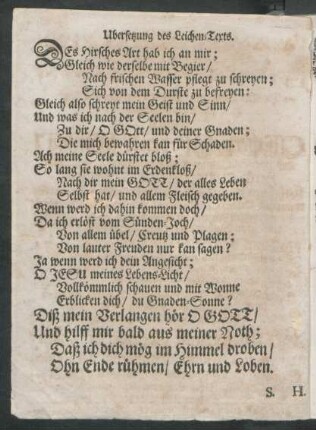 Ubersetzung des Leichen-Texts.
DEs Hirsches Art hab ich an mir;
Gleich wie derselbe mit Begier/
Nach frischen Wasser pflegt zu schreyen;
Sich von dem Durste zu befreyen:
Gleich also schreyt mein Geist und Sinn/
Und was ich nach der Seelen bin/
Zu dir/ O GOtt/ und deiner Gnaden;
Die mich bewahren kan für Schaden.
Ach meine Seele dürstet bloß;
So lang sie wohnt im Erdenkloß/
Nach dir mein GOTT/ der alles Leben
Selbst hat/ und allem Fleisch gegeben.
Wenn werd ich dahin kommen doch/
Da ich erlöst vom Sünden-Joch/
Von allem übel/ Creutz und Plagen;
Von lauter Freuden nur kan sagen?
Ja wenn werd ich dein Angesicht;
O JESU meines Lebens-Licht/
Vollkömmlich schauen und mit Wonne
Erblicken dich/ du Gnaden-Sonne?
Diß mein Verlangen hör O GOTT/
Und hilff mir bald aus meiner Noth;
Daß ich dich mög im Himmel droben/
Ohn Ende rühmen/ Ehrn und Loben.
S. H.